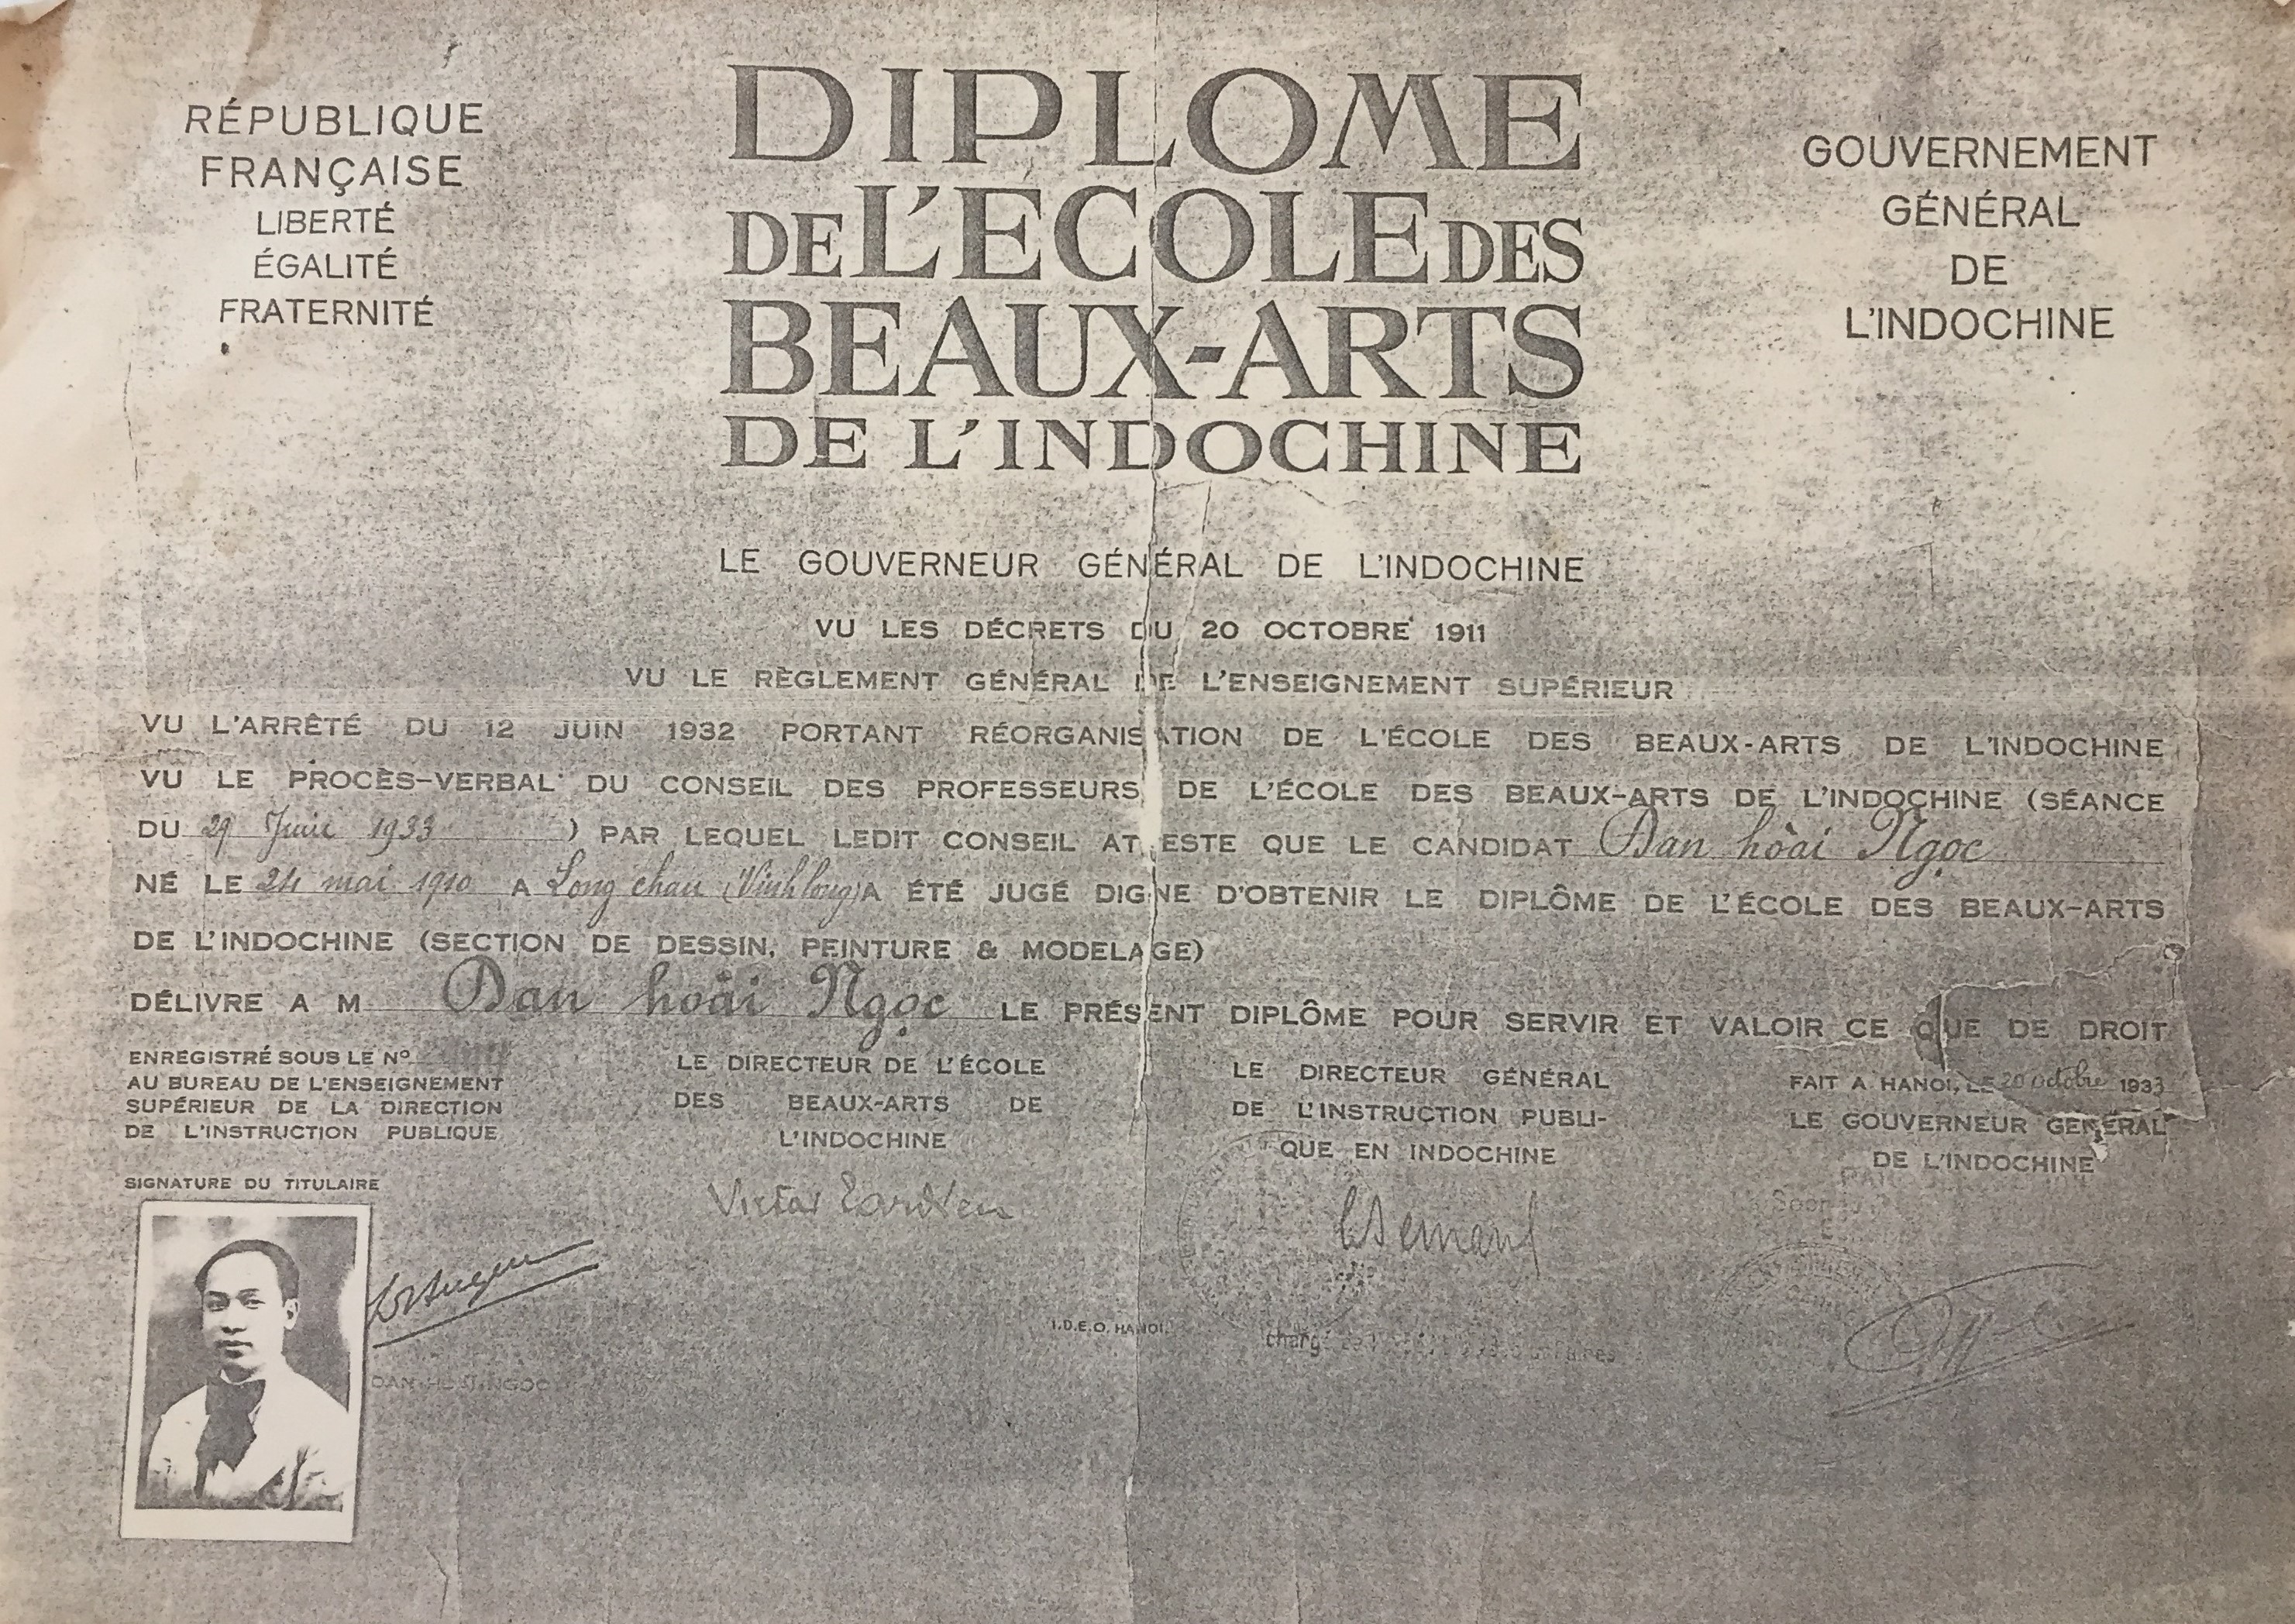 RÉPUBLIQUE
FRANÇAISE
LIBERTÉ
ÉGALITÉ
FRATERNITÉ
DIPLOME
DE L'ECOLE DES
BEAUX-ARTS
DE L'INDOCHINE
GOUVERNEMENT
GÉNÉRAL
DE
L'INDOCHINE
LE GOUVERNEUR GÉNÉRAL DE L'INDOCHINE
VU LES DÉCRETS DU 20 OCTOBRE 1911
VU LE RÈGLEMENT GÉNÉRAL DE L'ENSEIGNEMENT SUPÉRIEUR
VU L'ARRÊTÉ DU 12 JUIN 1932 PORTANT RÉORGANISATION DE L'ÉCOLE DES BEAUX-ARTS DE L'INDOCHINE
VU LE PROCÈS-VERBAL DU CONSEIL DES PROFESSEURS DE L'ÉCOLE DES BEAUX-ARTS DE L'INDOCHINE (SÉANCE
DU 29 Juin 1933 ) PAR LEQUEL LEDIT CONSEIL ATTESTE QUE LE CANDIDAT Đan hoài Ngọc
NÉ LE 24 mai 1910 A Long chau (Vinhlong) A ÉTÉ JUGÉ DIGNE D'OBTENIR LE DIPLÔME DE L'ÉCOLE DES BEAUX-ARTS
DE L'INDOCHINE (SECTION DE DESSIN, PEINTURE & MODELAGE)
DÉLIVRE A M Đan hoài Ngọc LE PRÉSENT DIPLÔME POUR SERVIR ET VALOIR CE QUE DE DROIT
ENREGISTRÉ SOUS LE Nº
AU BUREAU DE L'ENSEIGNEMENT
SUPÉRIEUR DE LA DIRECTION
DE L'INSTRUCTION PUBLIQUE
SIGNATURE DU TITULAIRE
DAN-HOAI-NGOC
LE DIRECTEUR DE L'ÉCOLE
DES BEAUX-ARTS DE
L'INDOCHINE
Victor Tardieu
I.D.E.O. HANOI.
LE DIRECTEUR GÉNÉRAL
DE L'INSTRUCTION PUBLI-
QUE EN INDOCHINE
FAIT A HANOI, LE 20 octobre 1933
LE GOUVERNEUR GENÉRAL
DE L'INDOCHINE